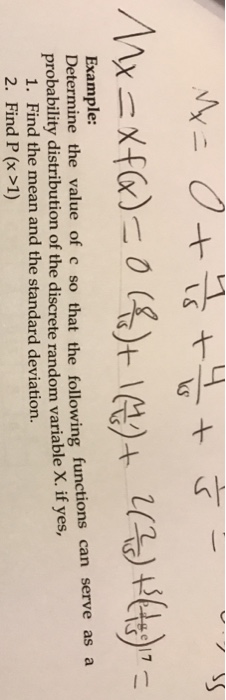 Mx = 0 + 4/15 + 4/15 +
Mx = x f(x) = 0 (8/15) + 1(4/15) + 2(2/15) + 3(1/15) =
Page 17
Example:
Determine the value of c so that the following functions can serve as a
probability distribution of the discrete random variable X. if yes,
1. Find the mean and the standard deviation.
2. Find P (x >1)